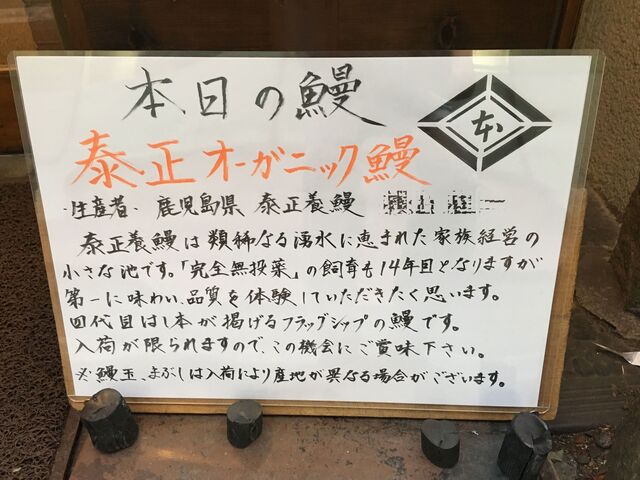 本日の鰻
本
泰正オーガニック鰻
生産者 鹿児島県 泰正養鰻
泰正養鰻は類稀なる湧水に恵まれた家族経営の
小さな池です。「完全無投薬」の飼育も14年目となりますが
第一に味わい、品質を体験していただきたく思います。
四代目はし本が掲げるフラッグシップの鰻です。
入荷が限られますので、この機会にご賞味下さい。
※鰻玉、まぶしは入荷により産地が異なる場合がございます。